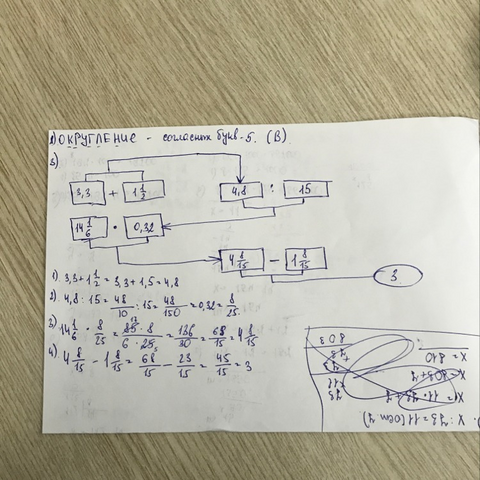 2) ОКРУГЛЕНИЕ - согласных букв-5. (В)
3)
3,3 + 1 1/2 4,8 : 15
14 1/6 · 0,32
4 8/15 - 1 8/15 3
1) 3,3 + 1 1/2 = 3,3 + 1,5 = 4,8
2) 4,8 : 15 = 48/10 : 15 = 48/150 = 0,32 = 8/25.
3) 14 1/6 · 8/25 = 85 · 8/6 · 25 = 136/30 = 68/15 = 4 8/15
4) 4 8/15 - 1 8/15 = 68/15 - 23/15 = 45/15 = 3
x : 73 = 11 (ост 7)
x = 11 · 73 + 7
x = 803 + 7
x = 810
803